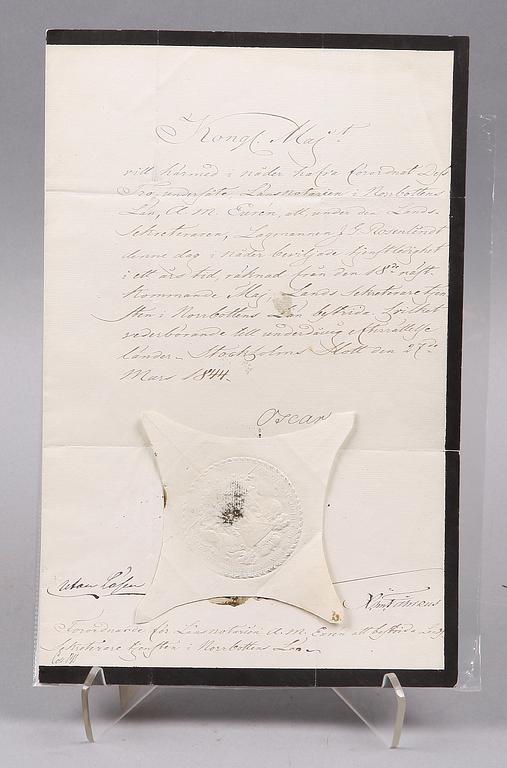 Kongl. Maj:t
vill härmed i nåder hafva förordnat Dess
Tro undersåte, Länsnotarien i Norrbottens
Län, A. M. Eurén, att, under den Lands-
Sekreteraren, Lagmannen J. G. Rosenlindt
denne dag i nåder beviljade tjenstledighet
i ett års tid, räknad från den 18de näst-
kommande Maj, Lands Sekreterare tjen
sten i Norrbottens Län bestrida. Hvilket
vederbörande till underdånig efterrättelse
länder. Stockholms Slott den 27de
Mars 1844.
Oscar
utan lösen
Förordnande för Länsnotarien A. M. Eurén att bestrida Lands
Sekreterare tjensten i Norrbottens Län